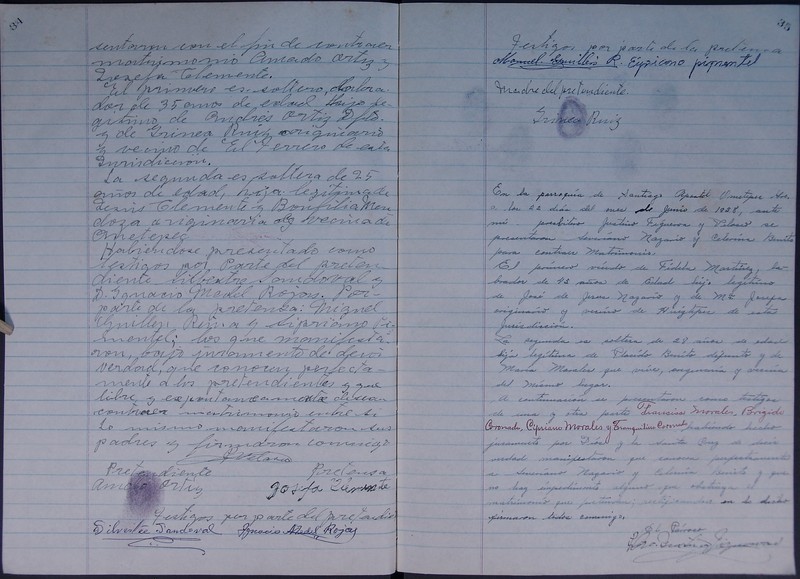 34
sentaron con el fin de contraer
matrimonio Amado Ortiz y
Josefa Clemente.
El primero es soltero, labra
dor de 35 años de edad hijo le-
gitimo de Andrés Ortiz Dfto.
y de Irinea Ruiz originario
y vecino de El Terrero de esta
Jurisdicción.
La segunda es soltera de 25
años de edad, hija legitima de
Jesús Clemente y Bonfilia Men
doza originaria y vecina de
Ometepec
Habiéndose presentado como
testigos por Parte del preten
diente Silvestre Sandoval y
D. Ignacio Madel Rojas. Por
parte de la pretensa: Miguel
Guillen, Reina y Sipriano Pi
mentel; los que manifesta
ron, bajo juramento de decir
verdad, que conocen perfecta-
mente a los pretendientes y que
libre y espontaneamente desean
contraer matrimonio entre si
lo mismo manifestaron sus
padres y firmaron conmigo
Pretendiente Pretensa
Amado Ortiz Josefa Clemente
Testigos por parte del pretendie
Silvestre Sandoval Ignacio Madel Rojas
35
Testigos por parte de la pretensa
Manuel Guillen R. Cipriano pimentel
Madre del pretendiente.
Irinea Ruiz
En la parroquia de Santiago Apostol Ometepec Gro.
a los 22 dias del mes de Junio de 1958, ante
mi presbitero Justino Figueroa y Velasco se
presentaron Severiano Nazario y Celerina Benito
para contraer Matrimonio.
El primero viudo de Fidela Martinez, la-
brador de 45 años de edad hijo legitimo
de José de Jesus Nazario y de Ma. Josefa
originario y vecino de Huixtepec de esta
jurisdiccion.
La segunda es soltera de 28 años de edad
hija legitima de Placido Benito difunto y de
Maria Morales que vive, originaria y vecina
del mismo lugar.
A continuacion se presentaron como testigos
de una y otra parte Francisca Morales, Brigido
Coronado, Cipriano Morales y Tranquilino Coronado habiendo hecho
juramento por Dios y la Santa Cruz de decir
verdad manifestaron que conocen perfectamente
a Severiano Nazario y Celerina Benito y que
no hay impedimento alguno que obstruya el
matrimonio que pretenden, ratificaron en lo dicho
firmaron todos conmigo.
El Parroco